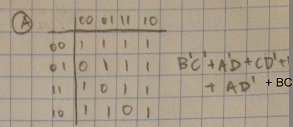 A 00 01 11 10
00 1 1 1 1
01 0 1 1 1
11 1 0 1 1
10 1 1 0 1
B'C' + A'D + CD' +
+ AD' + BC